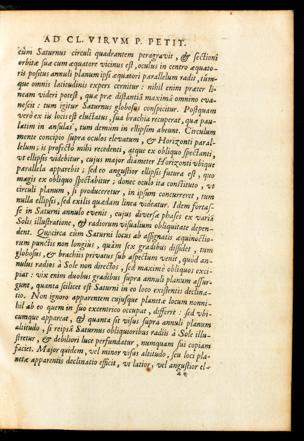 AD CL. VIRVM P. PETIT.
cùm Saturnus circuli quadrantem peragravit, & sectioni
orbitæ suæ cum æquatore vicinus est, oculus in centro æquato-
ris positus annuli planum ipsi æquatori parallelum radit, tùm-
que omnis latitudinis expers cernitur: nihil enim præter li-
neam videri potest, quæ præ distantiâ maximâ omnino eva-
nescit: tum igitur Saturnus globosus conspicitur. Postquam
verò ex iis locis est eluctatus, sua brachia recuperat, quæ pau-
latim in ansulas, tum demum in ellipsim abeunt. Circulum
mente concipio supra oculos elevatum, & Horizonti paral-
lelum; is profectò mihi recedenti, atque ex obliquo spectanti,
ut ellipsis videbitur, cujus major diameter Horizonti ubique
parallela apparebit; sed eo angustior ellipsis futura est, quo
magis ex obliquo spectabitur: donec oculo ita constituto, ut
circuli planum, si produceretur, in ipsum concurreret, tum
nulla ellipsis, sed exilis quædam linea videatur. Idem fortas-
se in Saturni annulo evenit, cujus diversæ phases ex variâ
Solis illustratione, & radiorum visualium obliquitate depen-
dent. Quocirca cùm Saturni locus ab assignatis æquinoctio-
rum punctis non longius, quàm sex gradibus dissidet, tum
globosus, & brachiis privatus sub aspectum venit, quòd an-
nulus radios à Sole non directos, sed maximè obliquos exci-
piat: vix enim duobus gradibus supra annuli planum assur-
gunt, quanta scilicet est Saturni in eo loco existentis declina-
tio. Non ignoro apparentem cujusque planetæ locum nonni-
hil ab eo quem in suo excentrico occupat, differre: sed ubi-
cumque appareat, & quanta sit visus supra annuli planum
altitudo, si reipsâ Saturnus obliquioribus radiis à Sole illu-
stretur, & debiliori luce perfundatur, nunquam sui copiam
faciet. Major quidem, vel minor visus altitudo, seu loci pla-
netæ apparentis declinatio efficit, ut latior, vel angustior el-